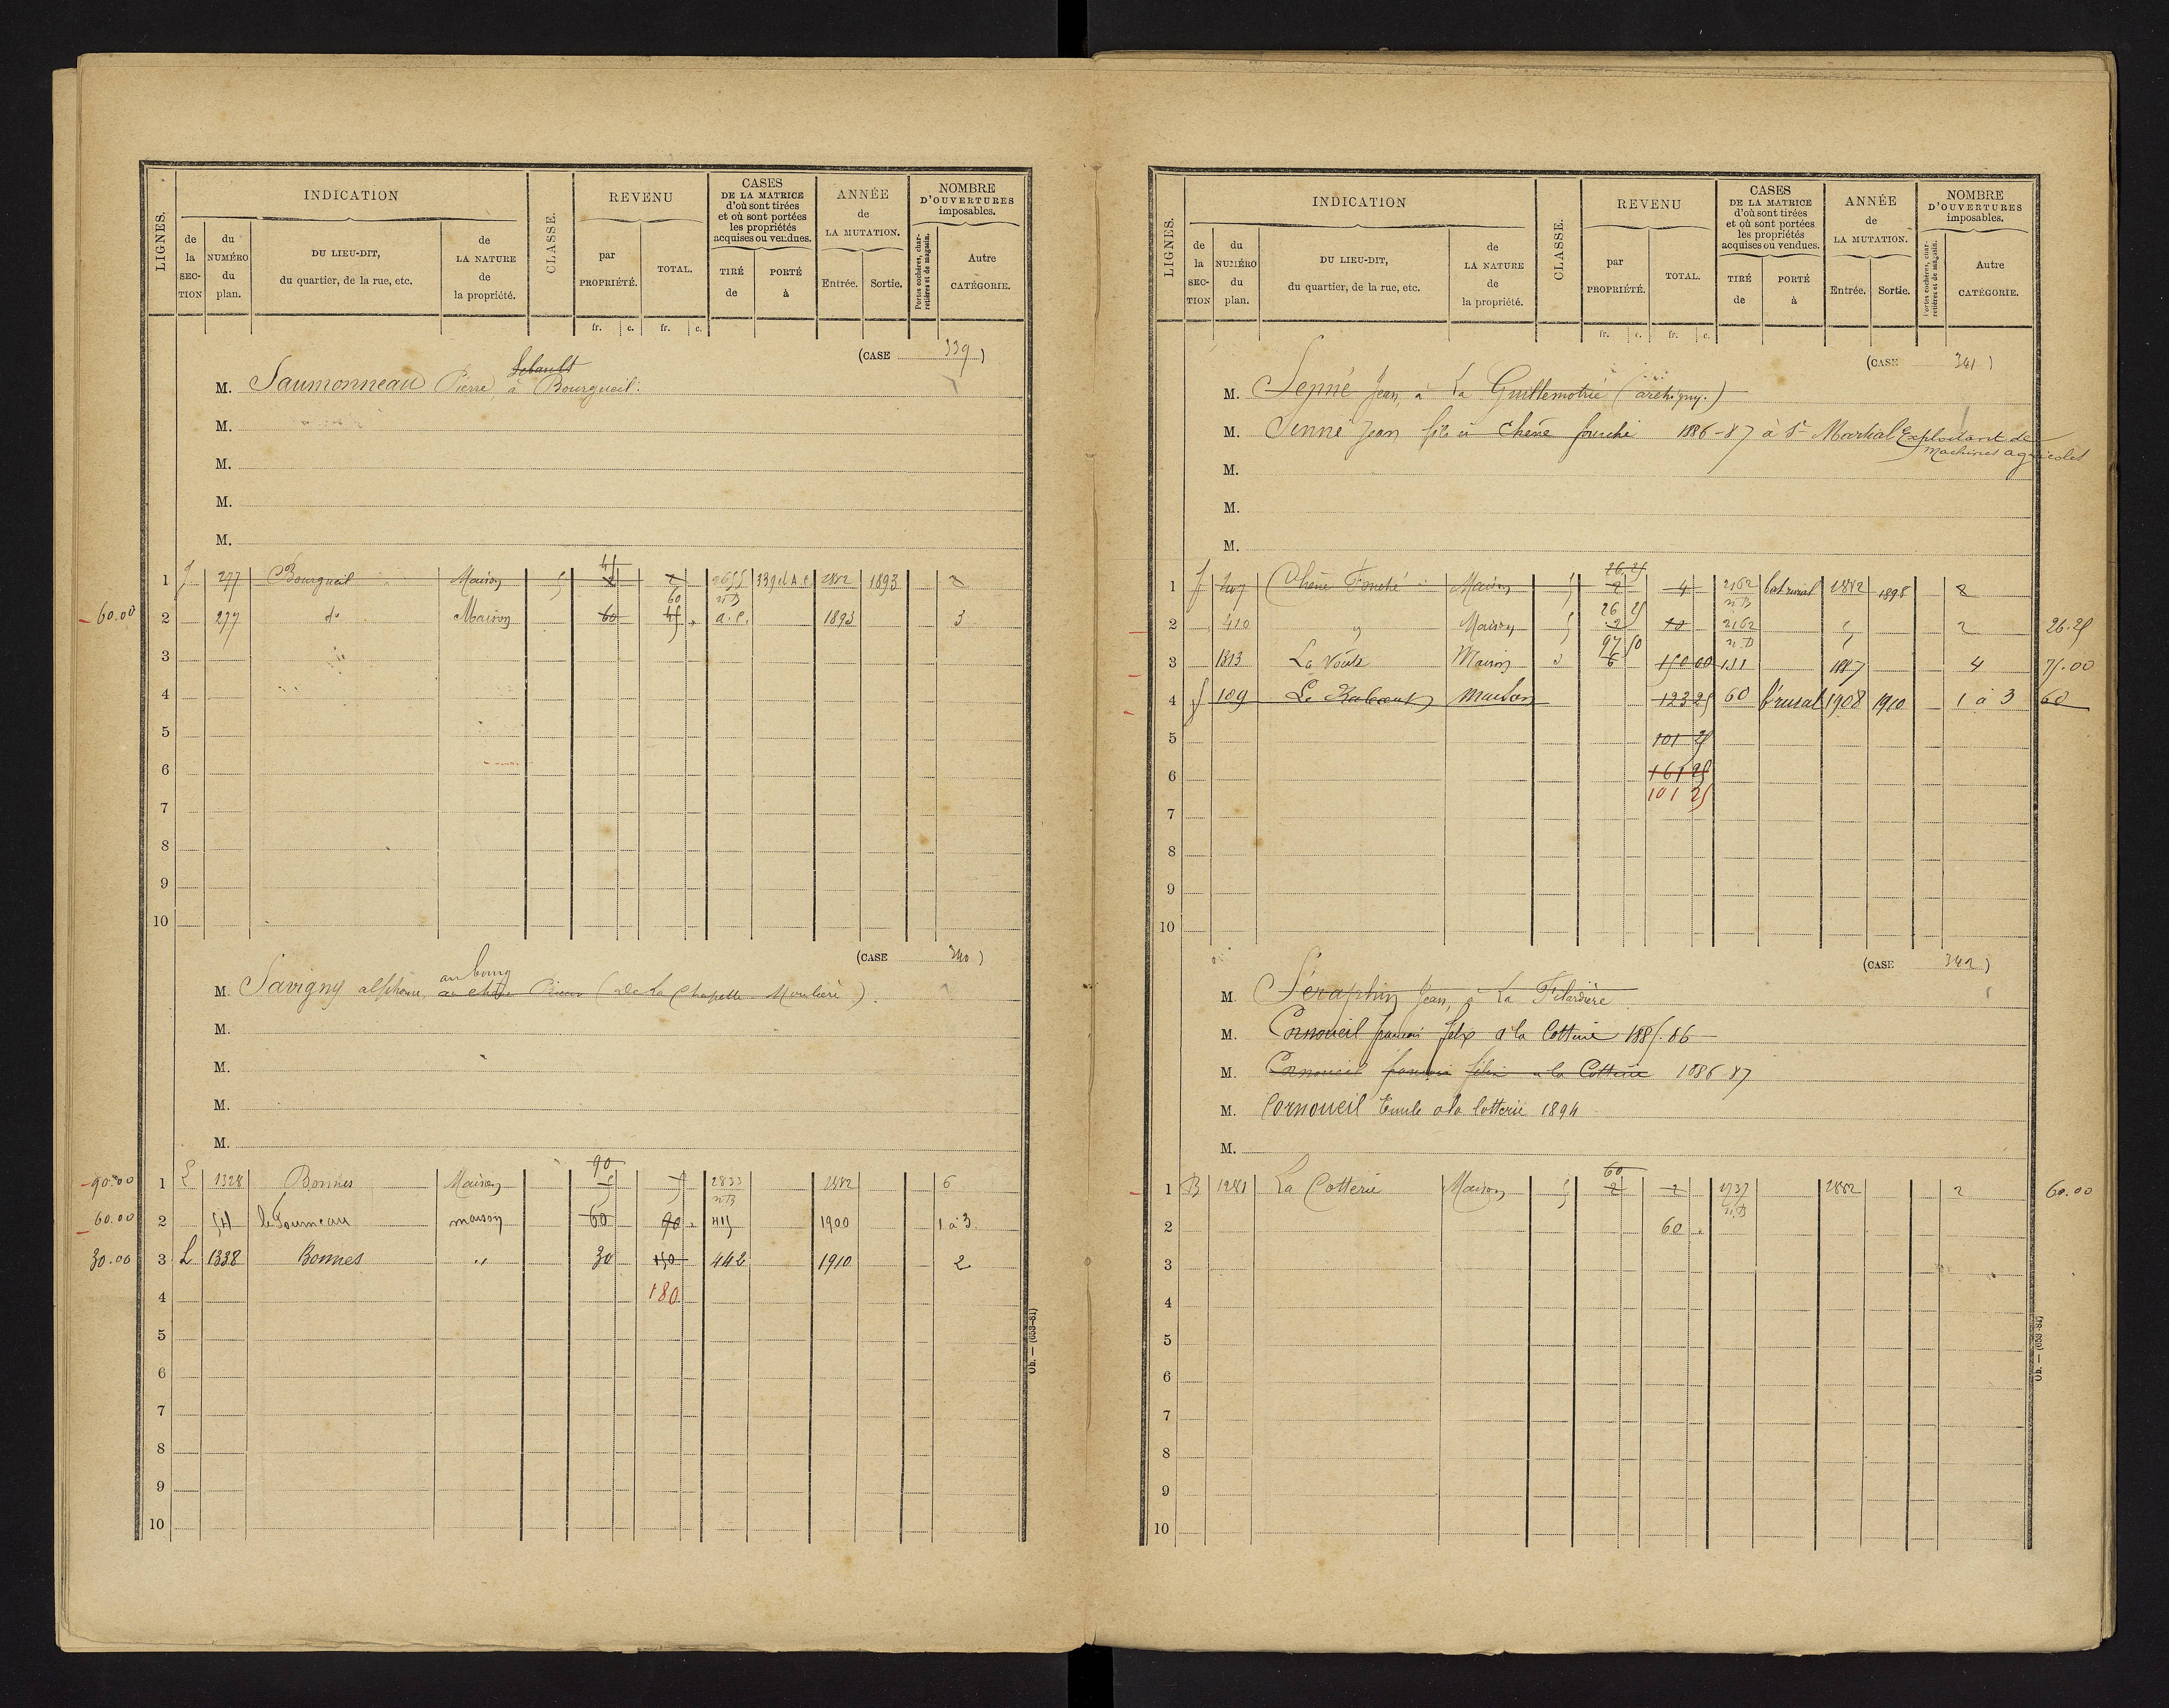 LIGNES.
INDICATION
de la SECTION
du NUMÉRO du plan.
DU LIEU-DIT, du quartier, de la rue, etc.
de LA NATURE de la propriété.
CLASSE.
REVENU
par PROPRIÉTÉ.
TOTAL.
fr. c. fr. c.
CASES DE LA MATRICE d'où sont tirées et où sont portées les propriétés acquises ou vendues.
TIRÉ de
PORTÉ à
ANNÉE de LA MUTATION.
Entrée. Sortie.
NOMBRE D'OUVERTURES imposables.
Portes cochères, charretières et de magasin.
Autre CATÉGORIE.
(CASE 339)
M. Saumonneau Pierre, à Bourgueil.
M.
M.
M.
M.
1 J 277 Bourgueil Maison 5 45 2 2 2655 nB 339 el A.C. 1882 1893 2
60.00 2 277 do Maison 60 45 60 a.C. 1893 3
3
4
5
6
7
8
9
10
(CASE 340)
au bourg
M. Savigny alphonse, (de La Chapelle Moulière).
M.
M.
M.
M.
90.00 1 L 1328 Bonnes Maison 90 5 5 2833 nB 1882 6
60.00 2 54 le Fourneau maison 60 90 415 1900 1 à 3
30.00 3 L 1338 Bonnes " 30 150 442 1910 2
4 180
5
6
7
8
9
10
Ob. — (653-81)
LIGNES.
INDICATION
de la SECTION
du NUMÉRO du plan.
DU LIEU-DIT, du quartier, de la rue, etc.
de LA NATURE de la propriété.
CLASSE.
REVENU
par PROPRIÉTÉ.
TOTAL.
fr. c. fr. c.
CASES DE LA MATRICE d'où sont tirées et où sont portées les propriétés acquises ou vendues.
TIRÉ de
PORTÉ à
ANNÉE de LA MUTATION.
Entrée. Sortie.
NOMBRE D'OUVERTURES imposables.
Portes cochères, charretières et de magasin.
Autre CATÉGORIE.
(CASE 341)
M. Senné Jean, à La Guillemotrie (archigny.)
M. Senné Jean fils à Chêne fouché 1886-87 à St Martial Exploitant de
machines agricoles
M.
M.
M.
1 J 407 Chêne Fouché Maison 5 26.25 2 4 2162 nB bat rural 1882 1898 2
2 410 " Maison 5 26 25 2 10 2162 nB 2 26.25
3 1813 La Voûte Maison 3 97 50 6 150 00 151 1887 4 75.00
4 J 109 maison 123 25 60 b. rural 1908 1910 1 à 3 60
5 101 25
6 161 25
101 25
7
8
9
10
(CASE 342)
M. Séraphin Jean, à La Filardière
M. Cornoueil francois felix à la Cotterie 1885.86
M. Cornoueil francois félix a la Cotterie 1886-87
M. Cornoueil Emile a la Cotterie 1894
M.
1 B 1281 La Cotterie Maison 5 60 2 2 1737 nB 1882 2 60.00
2 60
3
4
5
6
7
8
9
10
Ob. — (653-81)